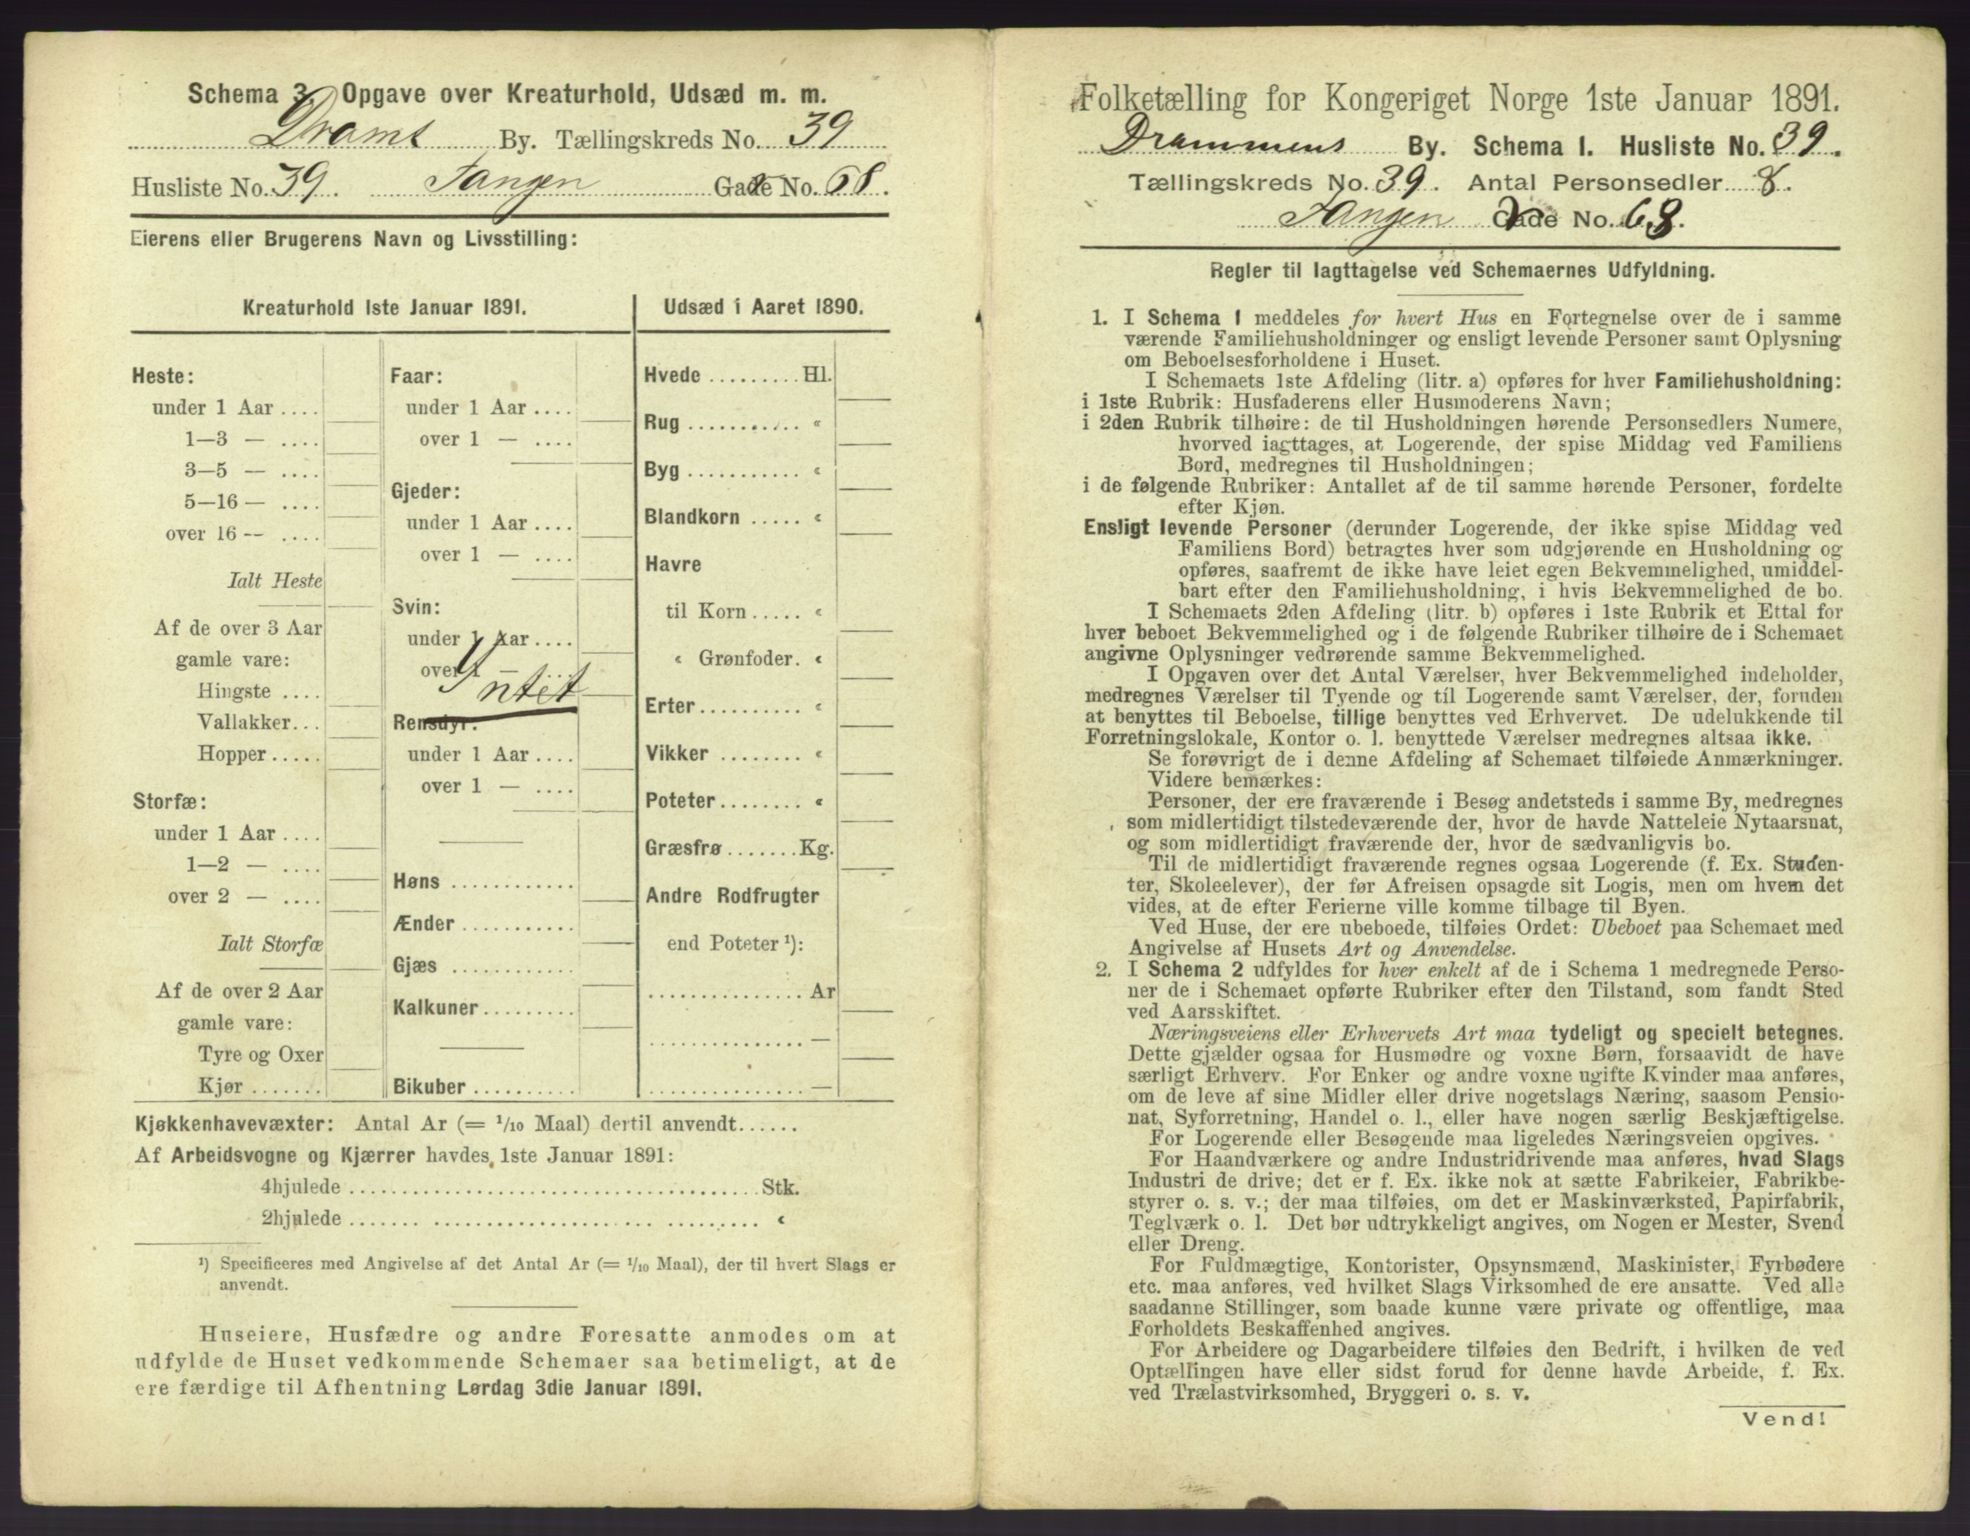 Schema 3. Opgave over Kreaturhold, Udsæd m. m.
Dramt By. Tællingskreds No. 39
Husliste No. 39. Tangen Gade No. 68.
Eierens eller Brugerens Navn og Livsstilling:
Kreaturhold 1ste Januar 1891.
Heste:
under 1 Aar ....
1—3 — ....
3—5 — ....
5—16 — ....
over 16 — ....
Ialt Heste
Af de over 3 Aar
gamle vare:
Hingste ....
Vallakker...
Hopper.....
Storfæ:
under 1 Aar ....
1—2 — ....
over 2 — ....
Ialt Storfæ
Af de over 2 Aar
gamle vare:
Tyre og Oxer
Kjør .......
Faar:
under 1 Aar ....
over 1 — ....
Gjeder:
under 1 Aar ....
over 1 — ....
Svin:
under 1 Aar ....
over 1 — ....
Intet
Rensdyr:
under 1 Aar ....
over 1 — ....
Høns ............
Ænder ...........
Gjæs ............
Kalkuner.........
Bikuber ..........
Udsæd i Aaret 1890.
Hvede ......... Hl.
Rug ........... "
Byg ........... "
Blandkorn ..... "
Havre
til Korn ..... "
" Grønfoder. "
Erter.......... "
Vikker ........ "
Poteter........ "
Græsfrø ....... Kg.
Andre Rodfrugter
end Poteter ¹):
............... Ar
............... —
............... —
Kjøkkenhavevæxter: Antal Ar (= 1/10 Maal) dertil anvendt......
Af Arbeidsvogne og Kjærrer havdes 1ste Januar 1891:
4hjulede ........................................ Stk.
2hjulede ........................................ "
¹) Specificeres med Angivelse af det Antal Ar (= 1/10 Maal), der til hvert Slags er
anvendt.
Huseiere, Husfædre og andre Foresatte anmodes om at
udfylde de Huset vedkommende Schemaer saa betimeligt, at de
ere færdige til Afhentning Lørdag 3die Januar 1891.
Folketælling for Kongeriget Norge 1ste Januar 1891.
Drammens By. Schema 1. Husliste No. 39.
Tællingskreds No. 39. Antal Personsedler 8.
Tangen Gade No. 68.
Regler til Iagttagelse ved Schemaernes Udfyldning.
1. I Schema 1 meddeles for hvert Hus en Fortegnelse over de i samme
værende Familiehusholdninger og ensligt levende Personer samt Oplysning
om Beboelsesforholdene i Huset.
I Schemaets 1ste Afdeling (litr. a) opføres for hver Familiehusholdning:
i 1ste Rubrik: Husfaderens eller Husmoderens Navn;
i 2den Rubrik tilhøire: de til Husholdningen hørende Personsedlers Numere,
hvorved iagttages, at Logerende, der spise Middag ved Familiens
Bord, medregnes til Husholdningen;
i de følgende Rubriker: Antallet af de til samme hørende Personer, fordelte
efter Kjøn.
Ensligt levende Personer (derunder Logerende, der ikke spise Middag ved
Familiens Bord) betragtes hver som udgjørende en Husholdning og
opføres, saafremt de ikke have leiet egen Bekvemmelighed, umiddel-
bart efter den Familiehusholdning, i hvis Bekvemmelighed de bo.
I Schemaets 2den Afdeling (litr. b) opføres i 1ste Rubrik et Ettal for
hver beboet Bekvemmelighed og i de følgende Rubriker tilhøire de i Schemaet
angivne Oplysninger vedrørende samme Bekvemmelighed.
I Opgaven over det Antal Værelser, hver Bekvemmelighed indeholder,
medregnes Værelser til Tyende og til Logerende samt Værelser, der, foruden
at benyttes til Beboelse, tillige benyttes ved Erhvervet. De udelukkende til
Forretningslokale, Kontor o. l. benyttede Værelser medregnes altsaa ikke.
Se forøvrigt de i denne Afdeling af Schemaet tilføiede Anmærkninger.
Videre bemærkes:
Personer, der ere fraværende i Besøg andetsteds i samme By, medregnes
som midlertidigt tilstedeværende der, hvor de havde Natteleie Nytaarsnat,
og som midlertidigt fraværende der, hvor de sædvanligvis bo.
Til de midlertidigt fraværende regnes ogsaa Logerende (f. Ex. Studen-
ter, Skoleelever), der før Afreisen opsagde sit Logis, men om hvem det
vides, at de efter Ferierne ville komme tilbage til Byen.
Ved Huse, der ere ubeboede, tilføies Ordet: Ubeboet paa Schemaet med
Angivelse af Husets Art og Anvendelse.
2. I Schema 2 udfyldes for hver enkelt af de i Schema 1 medregnede Perso-
ner de i Schemaet opførte Rubriker efter den Tilstand, som fandt Sted
ved Aarsskiftet.
Næringsveiens eller Erhvervets Art maa tydeligt og specielt betegnes.
Dette gjælder ogsaa for Husmødre og voxne Børn, forsaavidt de have
særligt Erhverv. For Enker og andre voxne ugifte Kvinder maa anføres,
om de leve af sine Midler eller drive nogetslags Næring, saasom Pensio-
nat, Syforretning, Handel o. l., eller have nogen særlig Beskjæftigelse.
For Logerende eller Besøgende maa ligeledes Næringsveien opgives.
For Haandværkere og andre Industridrivende maa anføres, hvad Slags
Industri de drive; det er f. Ex. ikke nok at sætte Fabrikeier, Fabrikbe-
styrer o. s. v.; der maa tilføies, om det er Maskinværksted, Papirfabrik,
Teglværk o. l. Det bør udtrykkeligt angives, om Nogen er Mester, Svend
eller Dreng.
For Fuldmægtige, Kontorister, Opsynsmænd, Maskinister, Fyrbødere
etc. maa anføres, ved hvilket Slags Virksomhed de ere ansatte. Ved alle
saadanne Stillinger, som baade kunne være private og offentlige, maa
Forholdets Beskaffenhed angives.
For Arbeidere og Dagarbeidere tilføies den Bedrift, i hvilken de ved
Optællingen have eller sidst forud for denne havde Arbeide, f. Ex.
ved Trælastvirksomhed, Bryggeri o. s. v.
Vend!